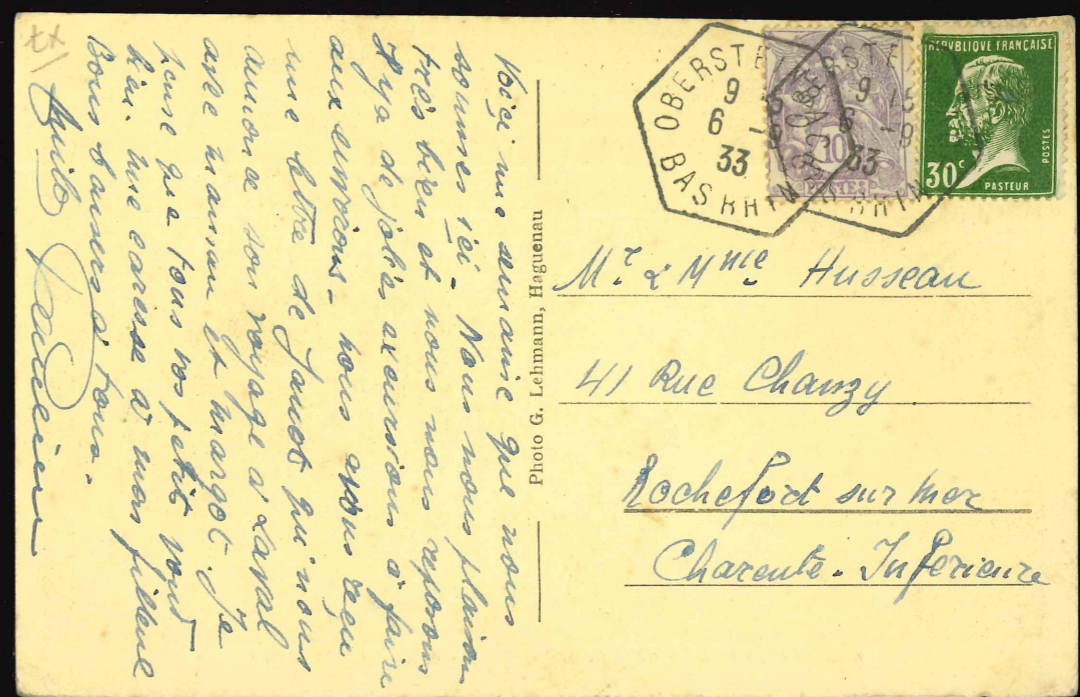 Voiçe une semaine que nous
sommes ici - Nous nous plaisons
très bien et nous nous reposons
Il y a de jolies excursions à faire
aux environs - nous avons reçu
une lettre de Janot qui nous
annonce son voyage à Laval
avec maman et margot. Je
pense que tous vos petits vont
bien. Une caresse à mon filleul
Bons baisers à tous -
Photo G. Lehmann, Haguenau
OBERSTE
BAS RHIN
9
6 -9
33
RÉPUBLIQUE FRANÇAISE
30c
PASTEUR
POSTES
10
POSTES
Mr & Mme Husseau
41 Rue Chanzy
Rochefort sur mer
Charente-Inférieure